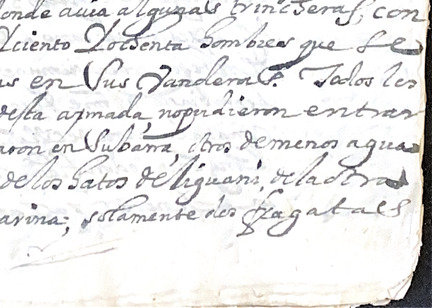 donde auia algunas trincheras, con
ciento Y ochenta hombres que se
as en sus Vanderas. Todos los
desta armada, nopudieron entrar
aron en subarra, otros demenos agua
delos hatos de liguani, de la otra
arina; solamente dos fragatas